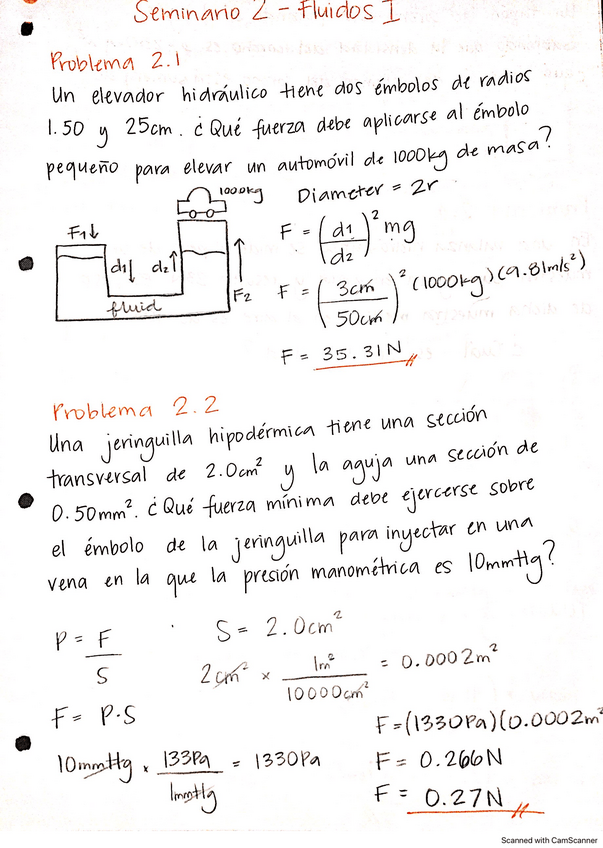 Seminario 2 - Fluidos I
Problema 2.1
Un elevador hidráulico tiene dos émbolos de radios
1.50 y 25cm. ¿Qué fuerza debe aplicarse al émbolo
pequeño para elevar un automóvil de 1000kg de masa?
1000kg
F1↓
d1↓ d2↑
F2
fluid
Diameter = 2r
F = (d1/d2)² mg
F = (3cm/50cm)² (1000kg)(9.81m/s²)
F = 35.31N
Problema 2.2
Una jeringuilla hipodérmica tiene una sección
transversal de 2.0cm² y la aguja una sección de
0.50mm². ¿Qué fuerza mínima debe ejercerse sobre
el émbolo de la jeringuilla para inyectar en una
vena en la que la presión manométrica es 10mmHg?
P = F/S
F = P·S
10mmHg × 133Pa/1mmHg = 1330Pa
S = 2.0cm²
2cm² × 1m²/10000cm² = 0.0002m²
F=(1330Pa)(0.0002m²
F = 0.266N
F = 0.27N
Scanned with CamScanner